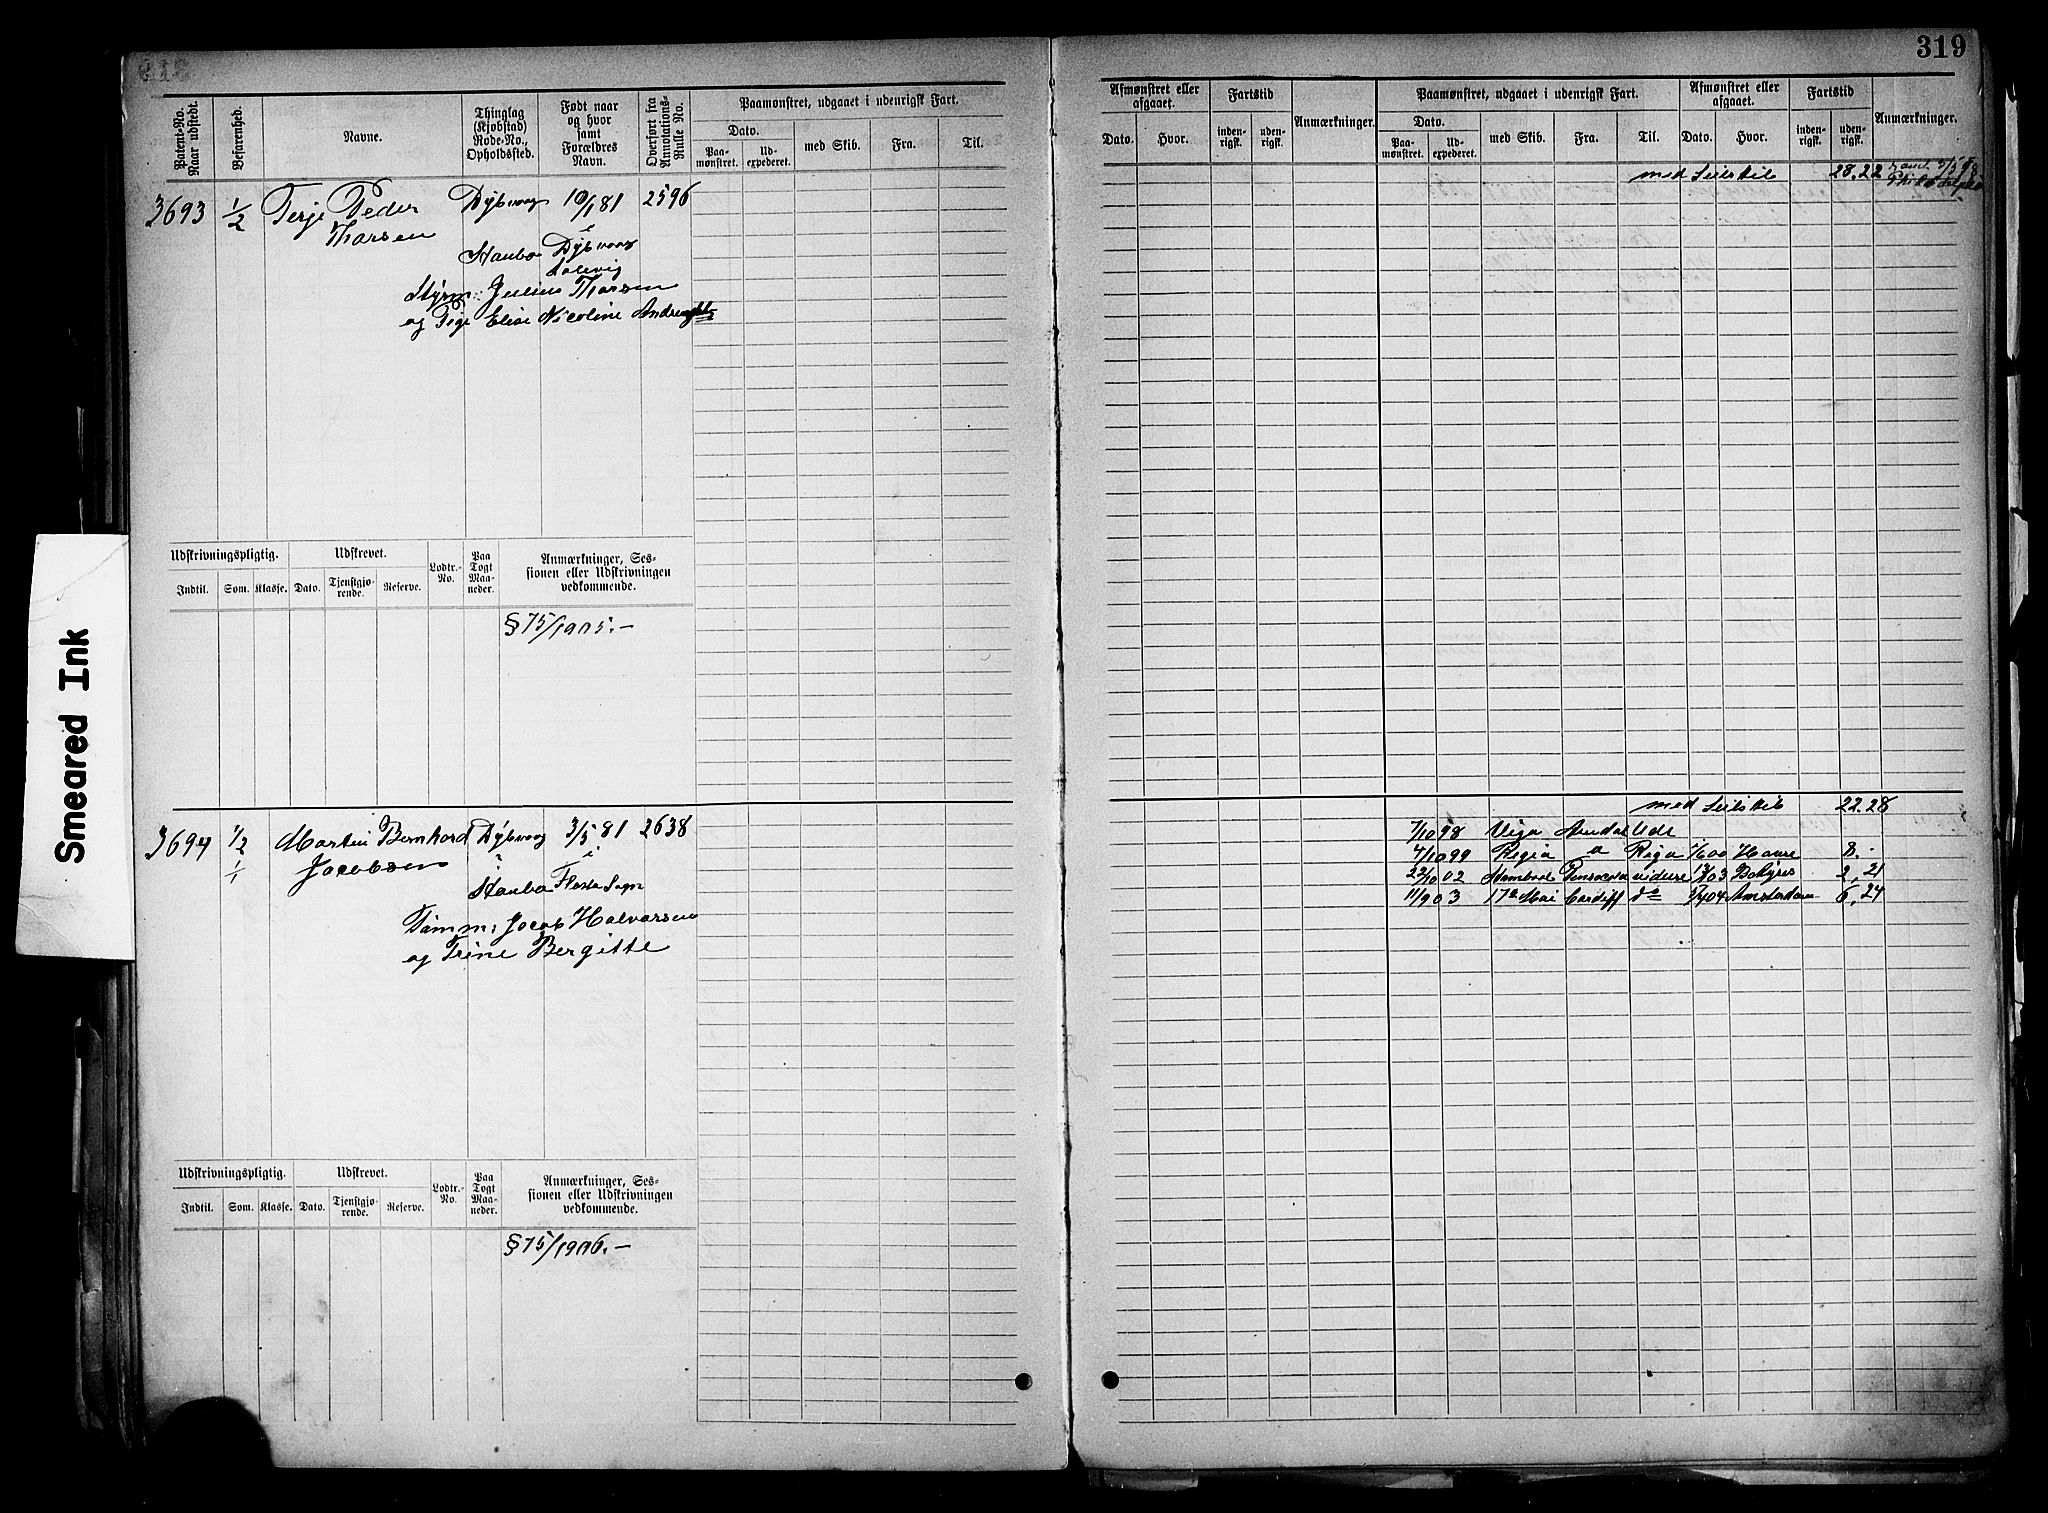 319
Patent-No. Naar udstedt.
Befarenhed.
Navne.
Thinglag (Kjøbstad) Rode-No., Opholdssted.
Født naar og hvor samt Forældres Navn.
Overført fra Annotations-Rulle No.
Paamønstret, udgaaet i udenrigsk Fart.
Dato.
Paa-mønstret.
Ud-expederet.
med Skib.
Fra.
Til.
Afmønstret eller afgaaet.
Dato.
Hvor.
Fartstid
inden-rigsk.
uden-rigsk.
Anmærkninger.
Paamønstret, udgaaet i udenrigsk Fart.
Dato.
Paa-mønstret.
Ud-expederet.
med Skib.
Fra.
Til.
Afmønstret eller afgaaet.
Dato.
Hvor.
Fartstid
inden-rigsk.
uden-rigsk.
Anmærkninger.
med Seilskib 28.22
3693 1/2 Terje Peder Dybvaag 10/1 81 2596
Tharsen
Staubø i Dybvaag
Styrm: Julius Tharsen
og Pige Elise Nicoline
Udskrivningspligtig.
Udskrevet.
Lodtr.-No.
Paa Togt Maa-neder.
Anmærkninger, Ses-sionen eller Udskrivningen vedkommende.
Indtil.
Som.
Klasse.
Dato.
Tjenstgjø-rende.
Reserve.
§ 75/1905.-
med Seilskib 22.28
3694 1/2 Martin Bernhard Dybvaag 3/5 81 2638
1/1 Jacobsen
i Staubø i Flosta Sogn
Tømm: Jacob Halvorsen
og Trine Bergitte
7/10 98 Viga Arendal Udr
4/10 99 Regia a Riga 1/6 00 Havre 8.-
22/10 02 Pensacola videre 2,21
11/9 03 17de Mai Cardiff do Amsterdam 6,24
Udskrivningspligtig.
Udskrevet.
Lodtr.-No.
Paa Togt Maa-neder.
Anmærkninger, Ses-sionen eller Udskrivningen vedkommende.
Indtil.
Som.
Klasse.
Dato.
Tjenstgjø-rende.
Reserve.
§ 75/1906.-
Smeared Ink